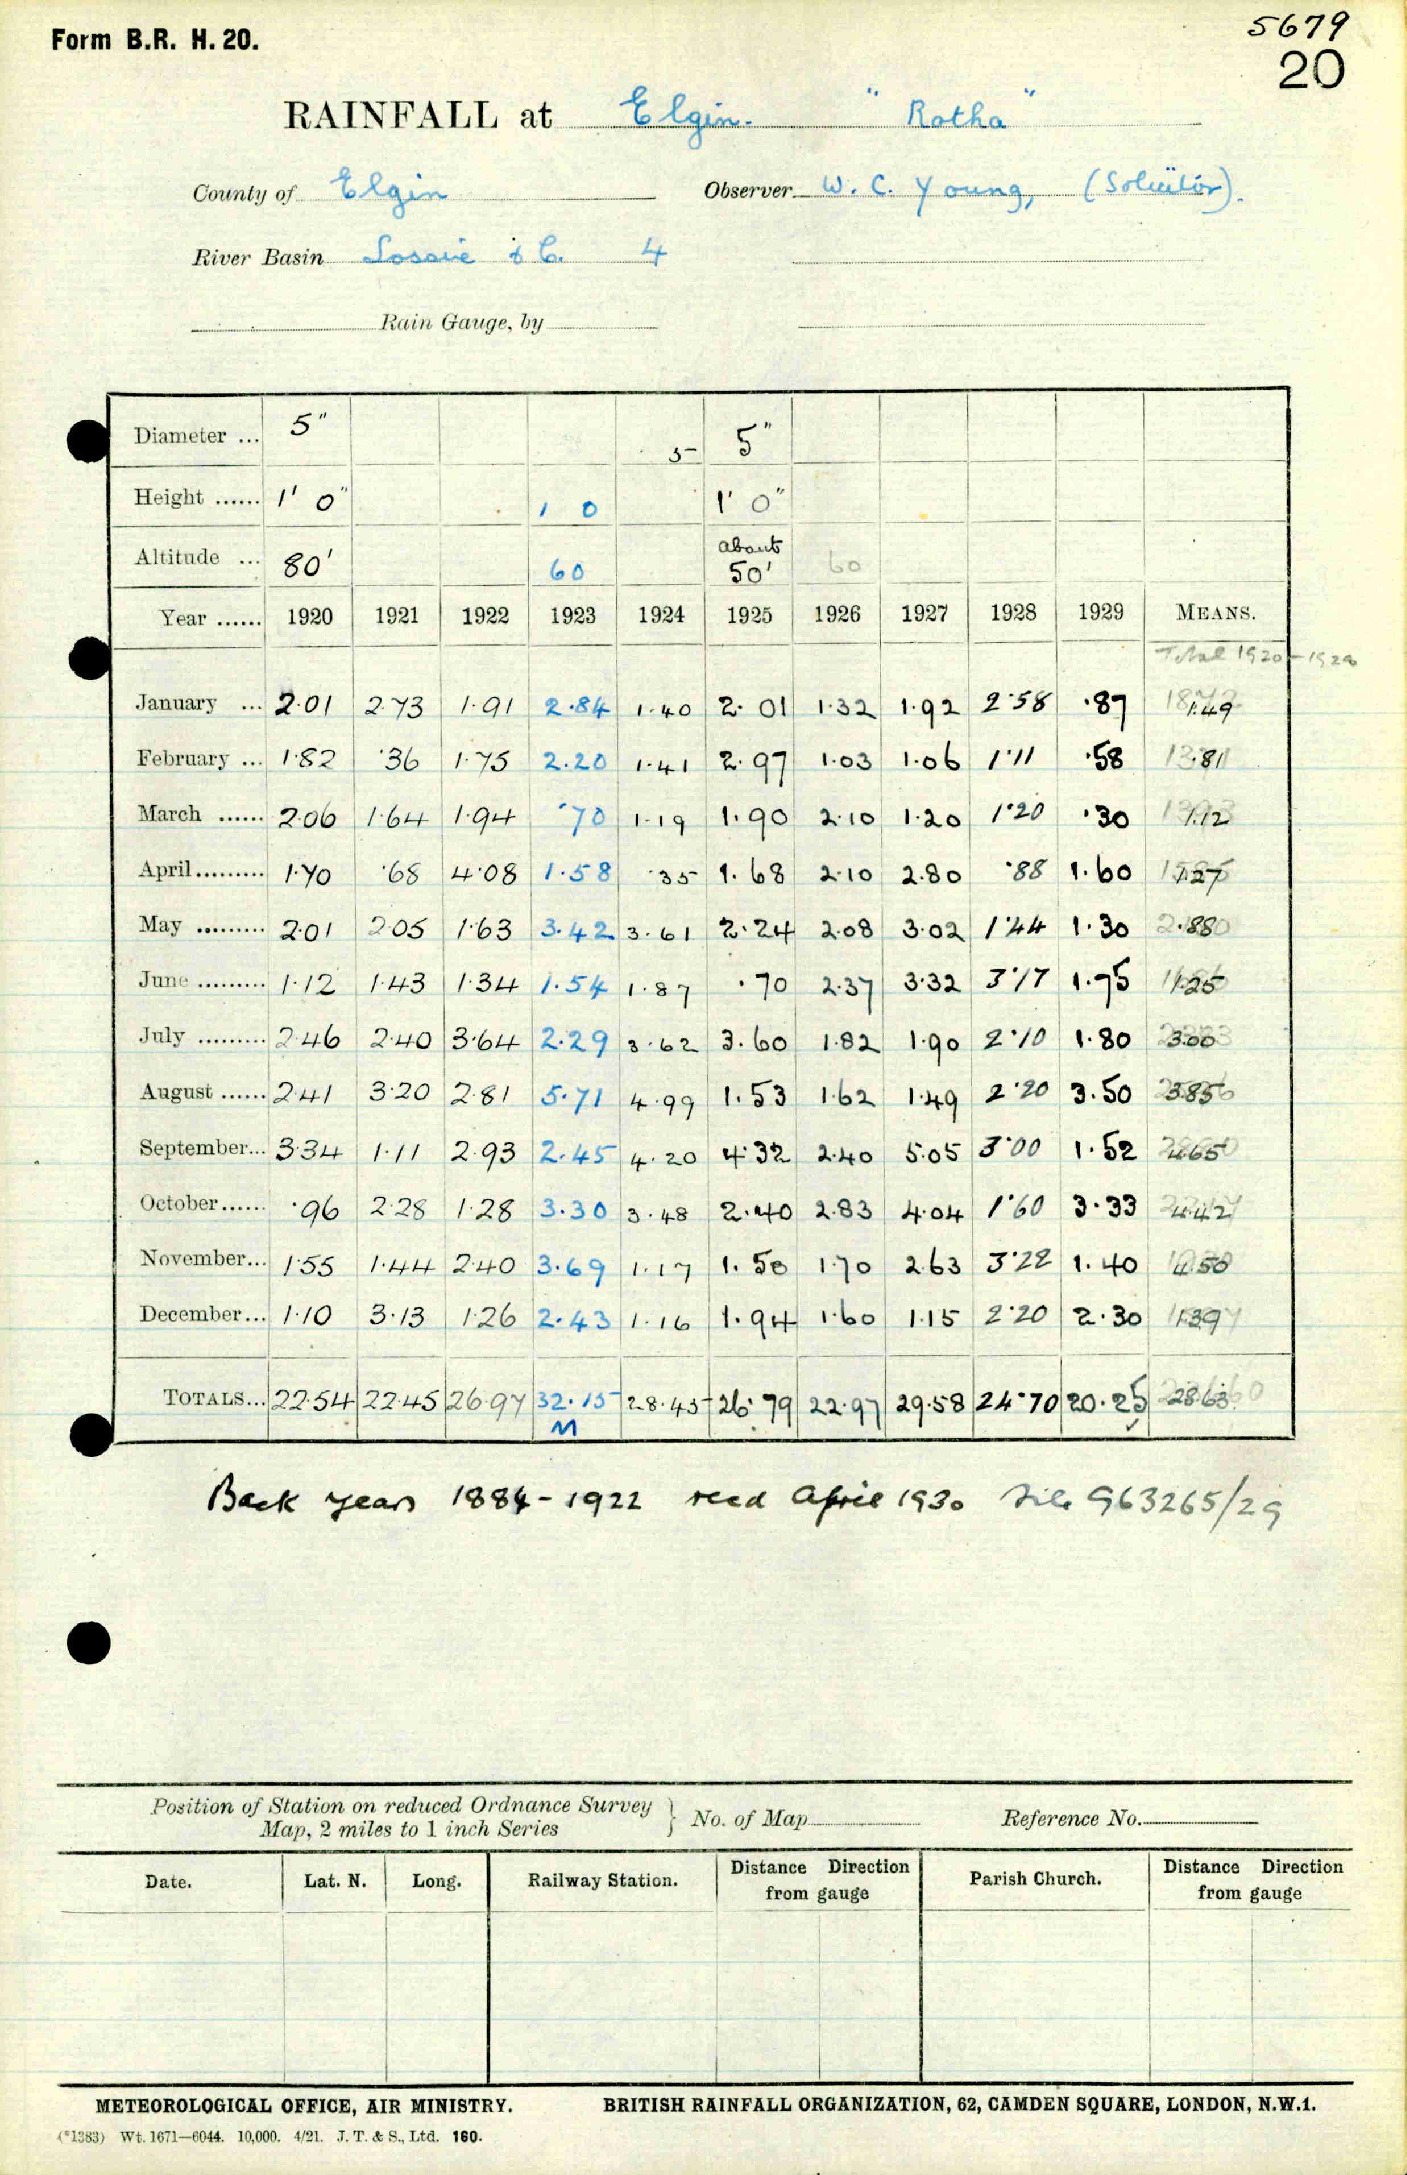 Form B.R. H. 20.
5679
20
RAINFALL at Elgin. "Rotha"
County of Elgin Observer W. C. Young, (Solicitor).
River Basin Lossie & C. 4
Rain Gauge, by
Diameter ... 5" 5 5"
Height ...... 1' 0" 1 0 1' 0"
Altitude ... 80' 60 about 50' 60
Year ...... 1920 1921 1922 1923 1924 1925 1926 1927 1928 1929 MEANS.
Total 1920-1929
January ... 2.01 2.73 1.91 2.84 1.40 2.01 1.32 1.92 2.58 .87 1.49
February ... 1.82 .36 1.75 2.20 1.41 2.97 1.03 1.06 1.11 .58 .81
March ...... 2.06 1.64 1.94 .70 1.19 1.90 2.10 1.20 1.20 .30 1.12
April......... 1.70 .68 4.08 1.58 .35 1.68 2.10 2.80 .88 1.60 1.27
May ......... 2.01 2.05 1.63 3.42 3.61 2.24 2.08 3.02 1.44 1.30 .88
June ......... 1.12 1.43 1.34 1.54 1.87 .70 2.37 3.32 3.17 1.75 1.25
July ......... 2.46 2.40 3.64 2.29 3.62 3.60 1.82 1.90 2.10 1.80 3.00
August ...... 2.41 3.20 2.81 5.71 4.99 1.53 1.62 1.49 2.20 3.50 3.85
September... 3.34 1.11 2.93 2.45 4.20 4.32 2.40 5.05 3.00 1.52 4.65
October...... .96 2.28 1.28 3.30 3.48 2.40 2.83 4.04 1.60 3.33 4.42
November... 1.55 1.44 2.40 3.69 1.17 1.50 1.70 2.63 3.22 1.40 4.50
December... 1.10 3.13 1.26 2.43 1.16 1.94 1.60 1.15 2.20 2.30 1.39
TOTALS... 22.54 22.45 26.97 32.15 28.45 26.79 22.97 29.58 24.70 20.25 28.63
M
Back years 1884-1922 recd April 1930 File 963265/29
Position of Station on reduced Ordnance Survey
Map, 2 miles to 1 inch Series } No. of Map Reference No.
Date. Lat. N. Long. Railway Station. Distance Direction from gauge Parish Church. Distance Direction from gauge
METEOROLOGICAL OFFICE, AIR MINISTRY. BRITISH RAINFALL ORGANIZATION, 62, CAMDEN SQUARE, LONDON, N.W.1.
(*1383) Wt. 1671—6044. 10,000. 4/21. J. T. & S., Ltd. 160.